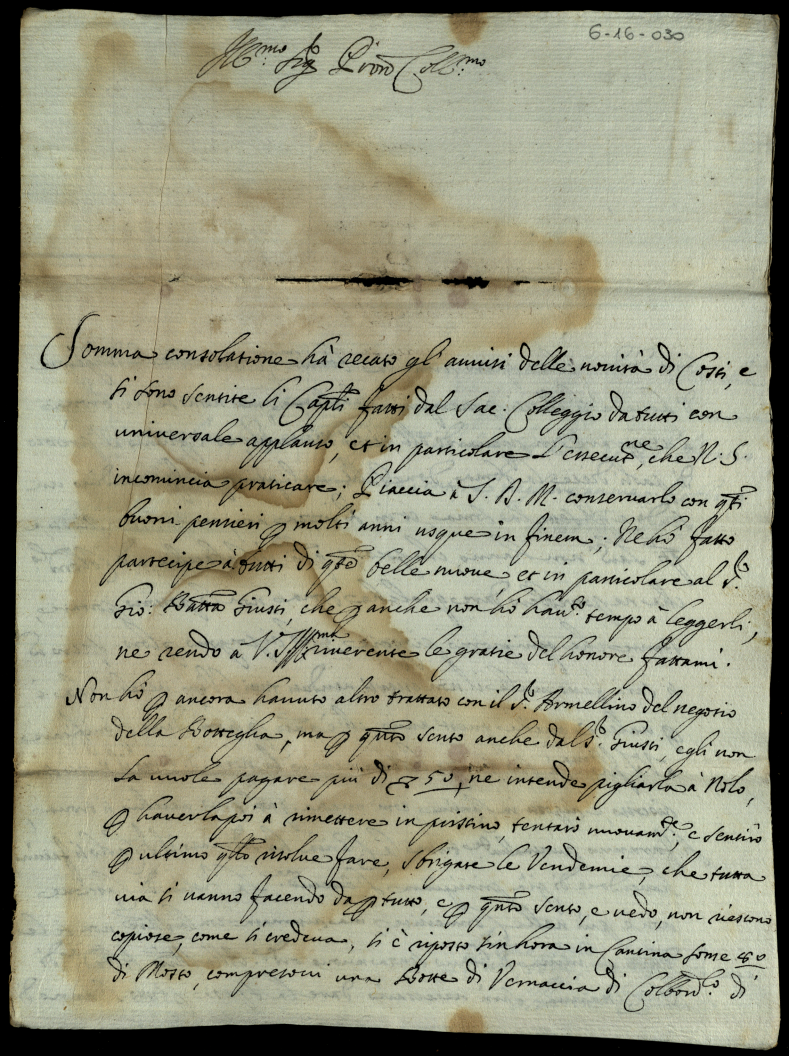 6-16-030
Ill.mo Sig.r P'ron Coll.mo
Somma consolatione hà recato gl'auuisi delle nouità di Costì, e
si sono sentite li Cap.li fatti dal Sac. Colleggio da tutti con
universale applauso, et in particolare l'essecut.ne, che N. S.
incomincia praticare; Piaccia à S. D. M. conseruarlo con q.ti
buoni pensieri p molti anni usque in finem; Ne hò fatto
partecipe à tutti di q.te belle nuoue, et in particolare al S.r
Gio: Batta Giusti, che p anche non hò hau.to tempo à leggerli,
ne rendo à V. S. Ill.ma riuerente le gratie del honore fattami.
Non hò p ancora hauuto altro trattato con il S.r Armellino del negotio
della Botteglia, ma p q.nto sento anche dal S.r Giusti, egli non
la uuole pagare più di 50, ne intende pigliarla à Nolo,
p hauerla poi à rimettere in pristino, tentarò nuouam.te, e sentirò
p ultimo q.llo risolue fare, sbrigate le Vendemie, che tutta
uia si uanno facendo da p tutto, e p q.nto sento, e uedo, non riescono
copiose, come si credeua, si è riposto sin hora in Cantina some
di Mosto, compresoui una Botte di Vernaccia di Colbord.o di